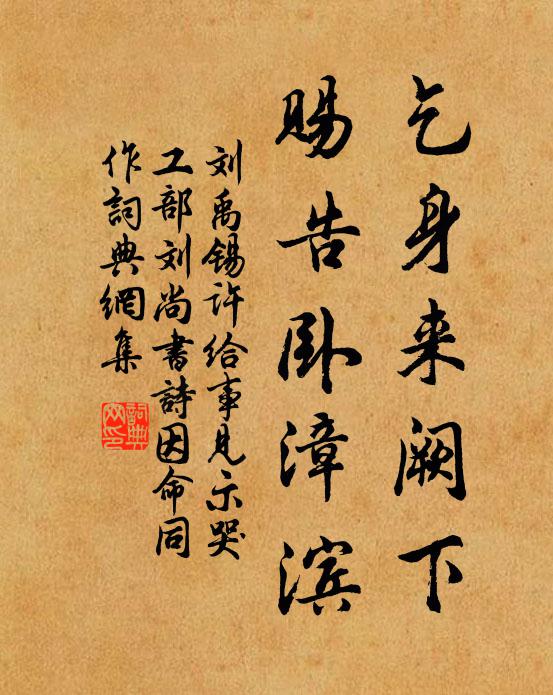 乞身来阙下
赐告卧漳滨
刘禹锡许给事见示哭
工部刘尚书詩因命同
作詞典網集
詞典